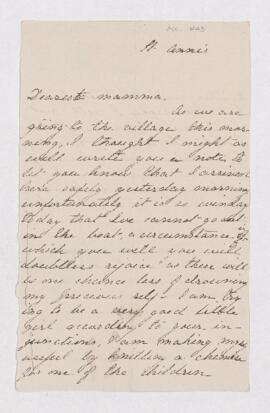 St. Annis
Dearest mamma,
As we are
going to the village this mor-
ning, I thought I might as
well write you a note, to
let you know that I arrived
here safely yesterday morning
unfortunately it is so windy
today that we cannot go out
in the boat, a circumstance
which you will
doubtless rejoice as there will
be one chance less of drowning
my precious self. I am try-
ing to be a very good little
girl according to your in-
junctions, I am making my-
useful by knitting a chemise
for one of the children